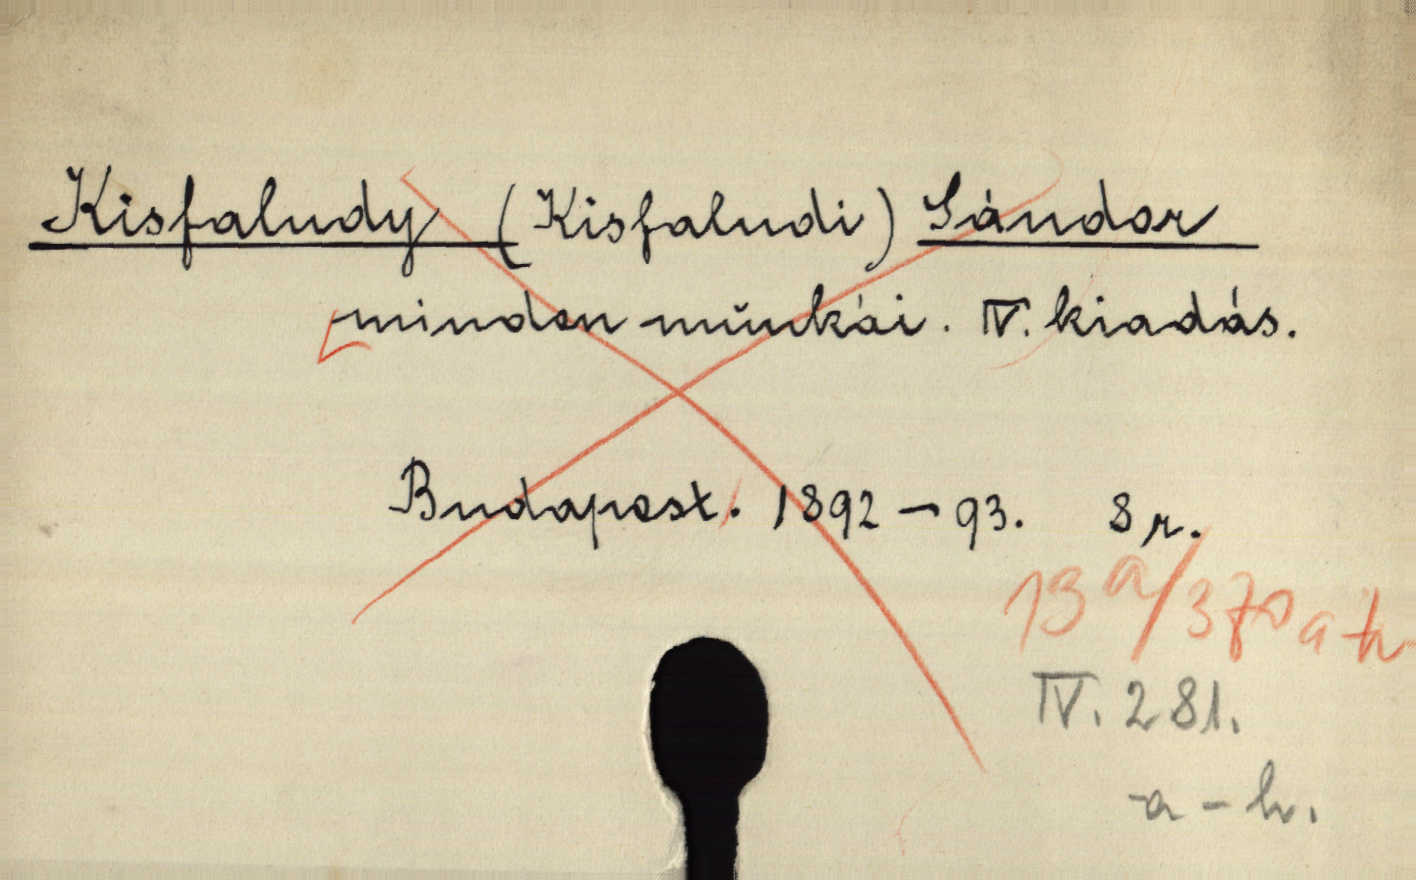 Kisfaludy (Kisfaludi) Sándor
minden munkái. IV. kiadás.
Budapest. 1892-93. 8 r.
13 a/370 a-h
IV. 281.
a-h.